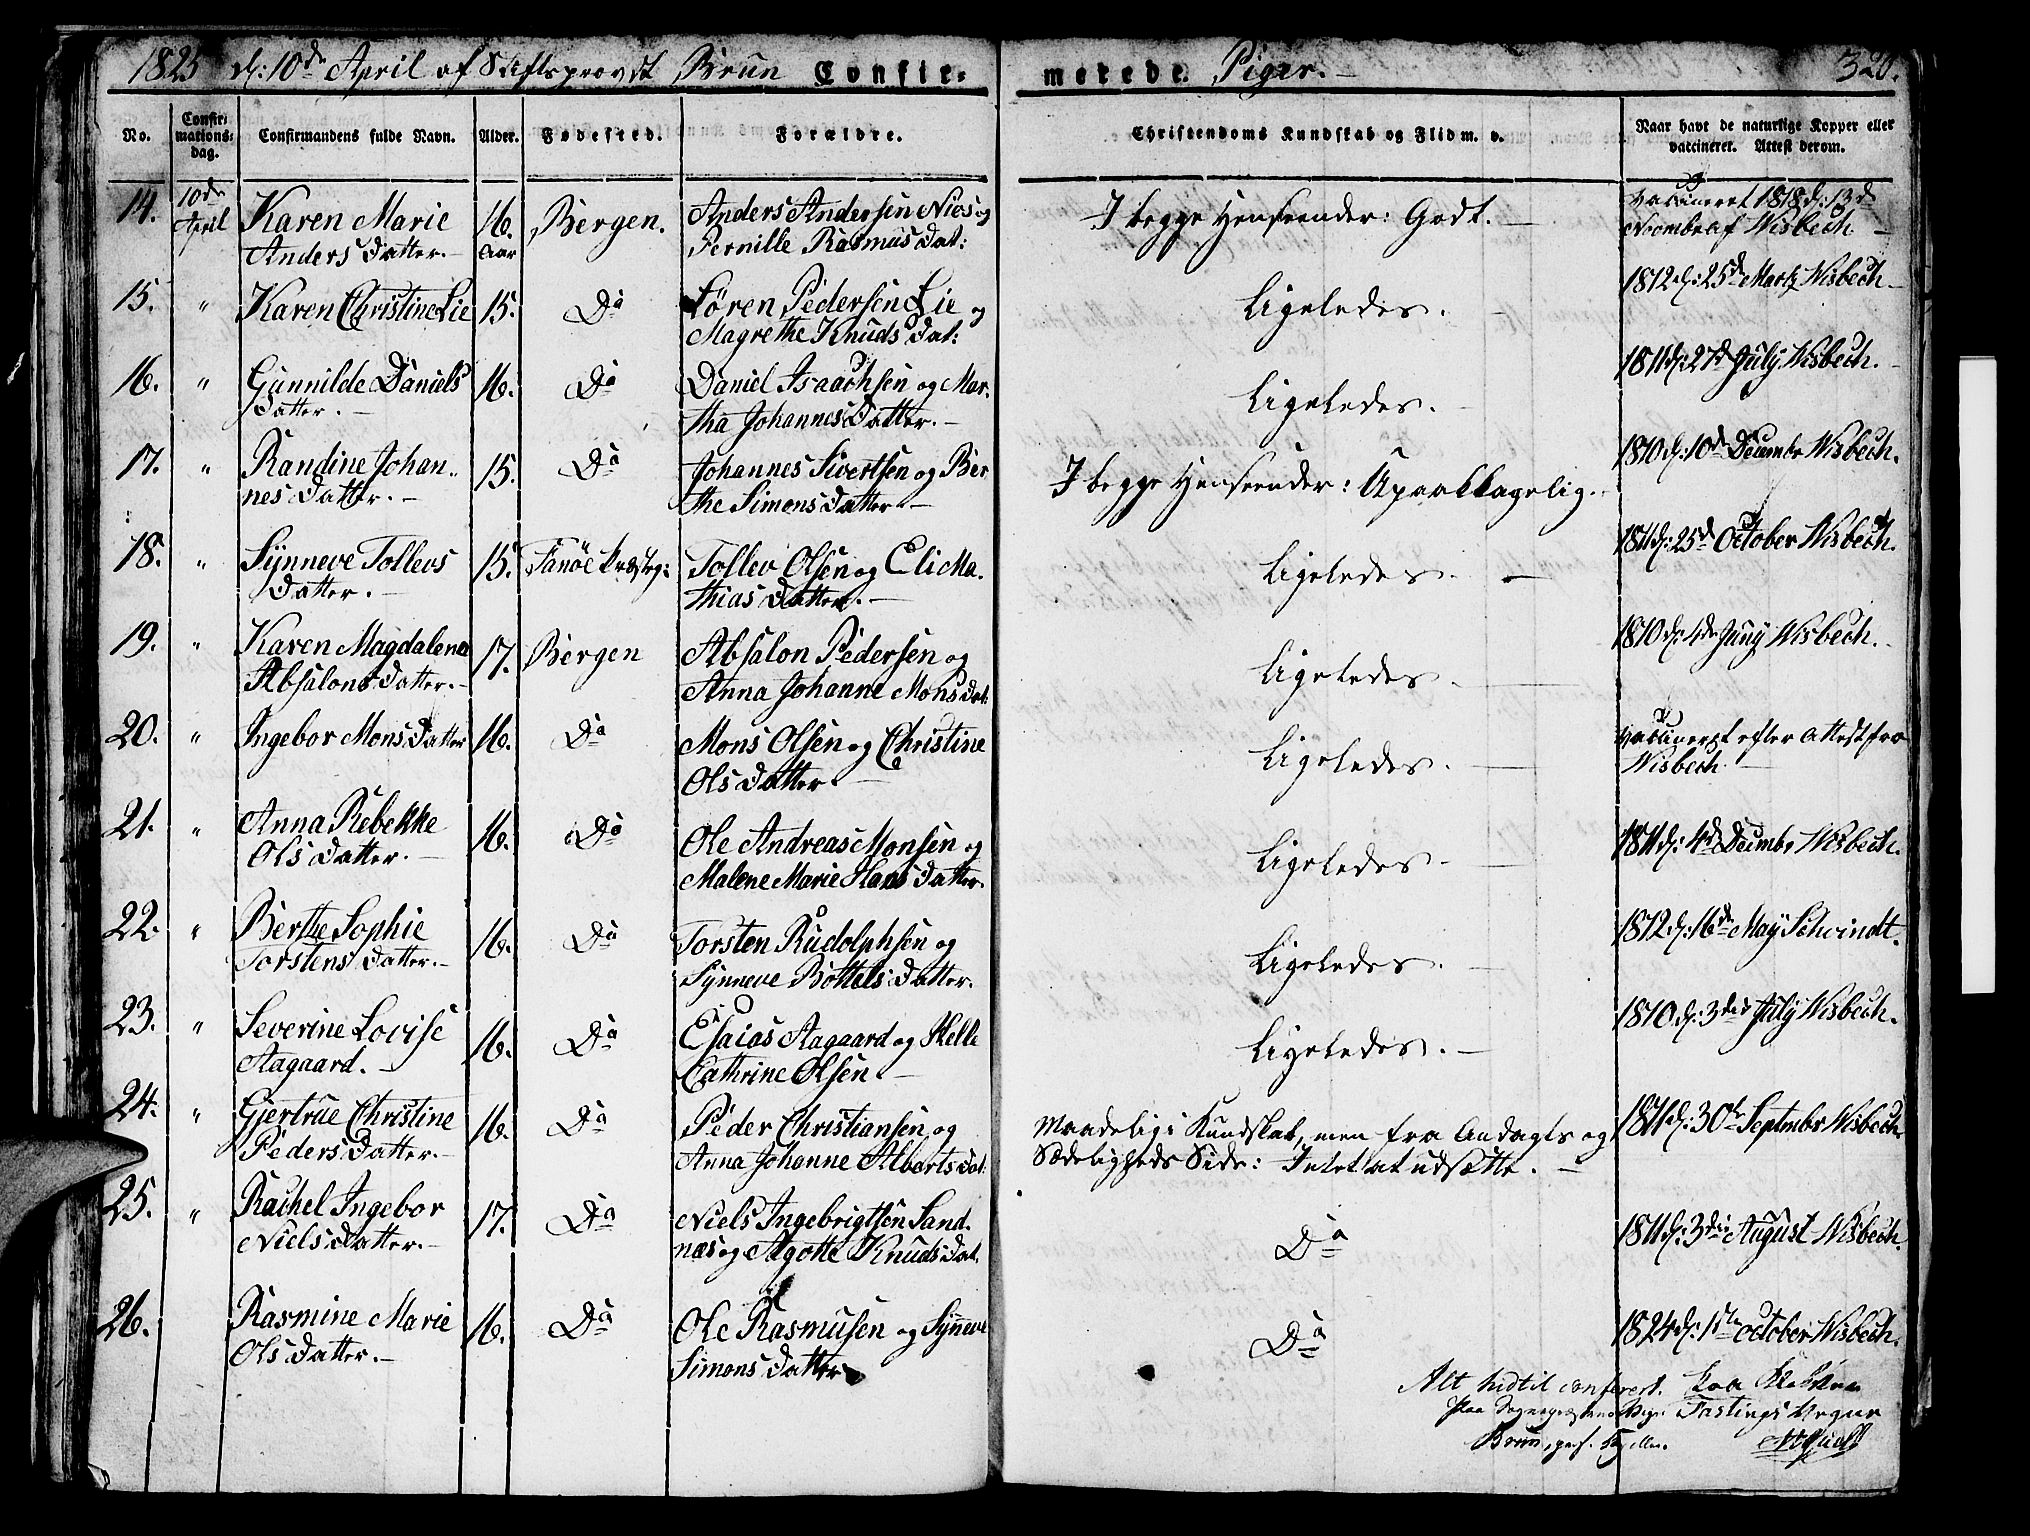 1825 d: 10de April af Stiftsprovst Brun Confir-
merede Piger. 320.
No.
Confir-
mations-
dag.
Confirmandens fulde Navn.
Alder.
Fødested.
Forældre.
Christendoms Kundskab og Flid m. v.
Naar havt de naturlige Kopper eller
vaccineret. Attest derom.
14. 10de
April
Karen Marie
Anders Datter.
16.
Aar
Bergen.
Anders Andersen Nies og
Pernille Rasmus Dat:
I begge Henseender: Godt.
vaccineret 1818 d: 13d
Novmbr af Wisbech
15. " Karen Christine Lie 15. Do
Sören Pedersen Lie og
Magrethe Knuds Dat:
Ligeledes.
1812 d: 25de Martz Wisbech
16. " Gunnilde Daniels
Datter.
16. Do
Daniel Isaachsen og Mar.
tha Johannes Datter.
Ligeledes.
1811 d: 27de July Wisbech.
17. " Randine Johan..
nes Datter.
15. Do
Johannes Sivertsen og Ber
the Simens Datter
I begge Henseender: Upaaklagelig.
1810 d: 10de Decembr Wisbech.
18. " Synneve Tollevs
Datter.
15. Fanöe Præstg:
Tollev Olsen og Eli Ma.
thias Datter.
Ligeledes.
1811 d: 25de October Wisbech.
19. " Karen Magdalena
Absalons Datter.
17. Bergen
Absalon Pedersen og
Anna Johanne Mons Dat:
Ligeledes.
1810 d: 4de Juny Wisbech.
20. " Ingebor Mons Datter 16. Do
Mons Olsen og Christine
Ols Datter
Ligeledes.
vaccineret efter Attest fra
Wisbech
21. " Anna Rebekke
Ols Datter.
16. Do
Ole Andreas Monsen og
Malene Marie Hans Datter.
Ligeledes
1811 d: 4de Decmbr Wisbech.
22. " Berthe Sophie
Torstens Datter.
16. Do
Torsten Rudolphsen og
Synneve Bottels Datter.
Ligeledes.
1812 d: 16de May Schvindt.
23. " Severine Lovise
Aagaard.
16. Do
Esaias Aagaard og Helle
Cathrine Olsen
Ligeledes.
1810 d: 3die July Wisbech.
24. " Gjertrue Christine
Peders Datter.
16. Do
Peder Christiansen og
Anna Johanne Alberts Dat:
Maadelig i Kundskab, men fra Andagts og
Sædeligheds Side: Intet at udsætte.
1811 d: 30te Septmbr Wisbech
25. " Rachel Ingebor
Niels Datter.
17. Do
Niels Ingebrigtsen Sand.
næs og Agotte Knuds Dat.
Do
1811 d: 3die August Wisbech.
26. Rasmine Marie
Ols Datter.
16. Do
Ole Rasmusen og Synneve
Simons Datter
Do
1824 d: 1ste October Wisbech.
Alt hidtil confereret.
Fastings
Brun